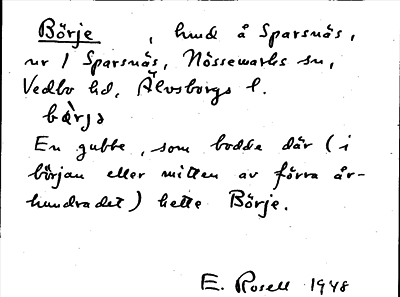 Börje, hmd å Sparsnäs,
nr 1 Sparsnäs, Nössemarks sn,
Vedbo hd, Älvsborgs l.
bœ̀rjə
En gubbe, som bodde där (i
början eller mitten av förra år-
hundradet) hette Börje.
E. Rosell 1948